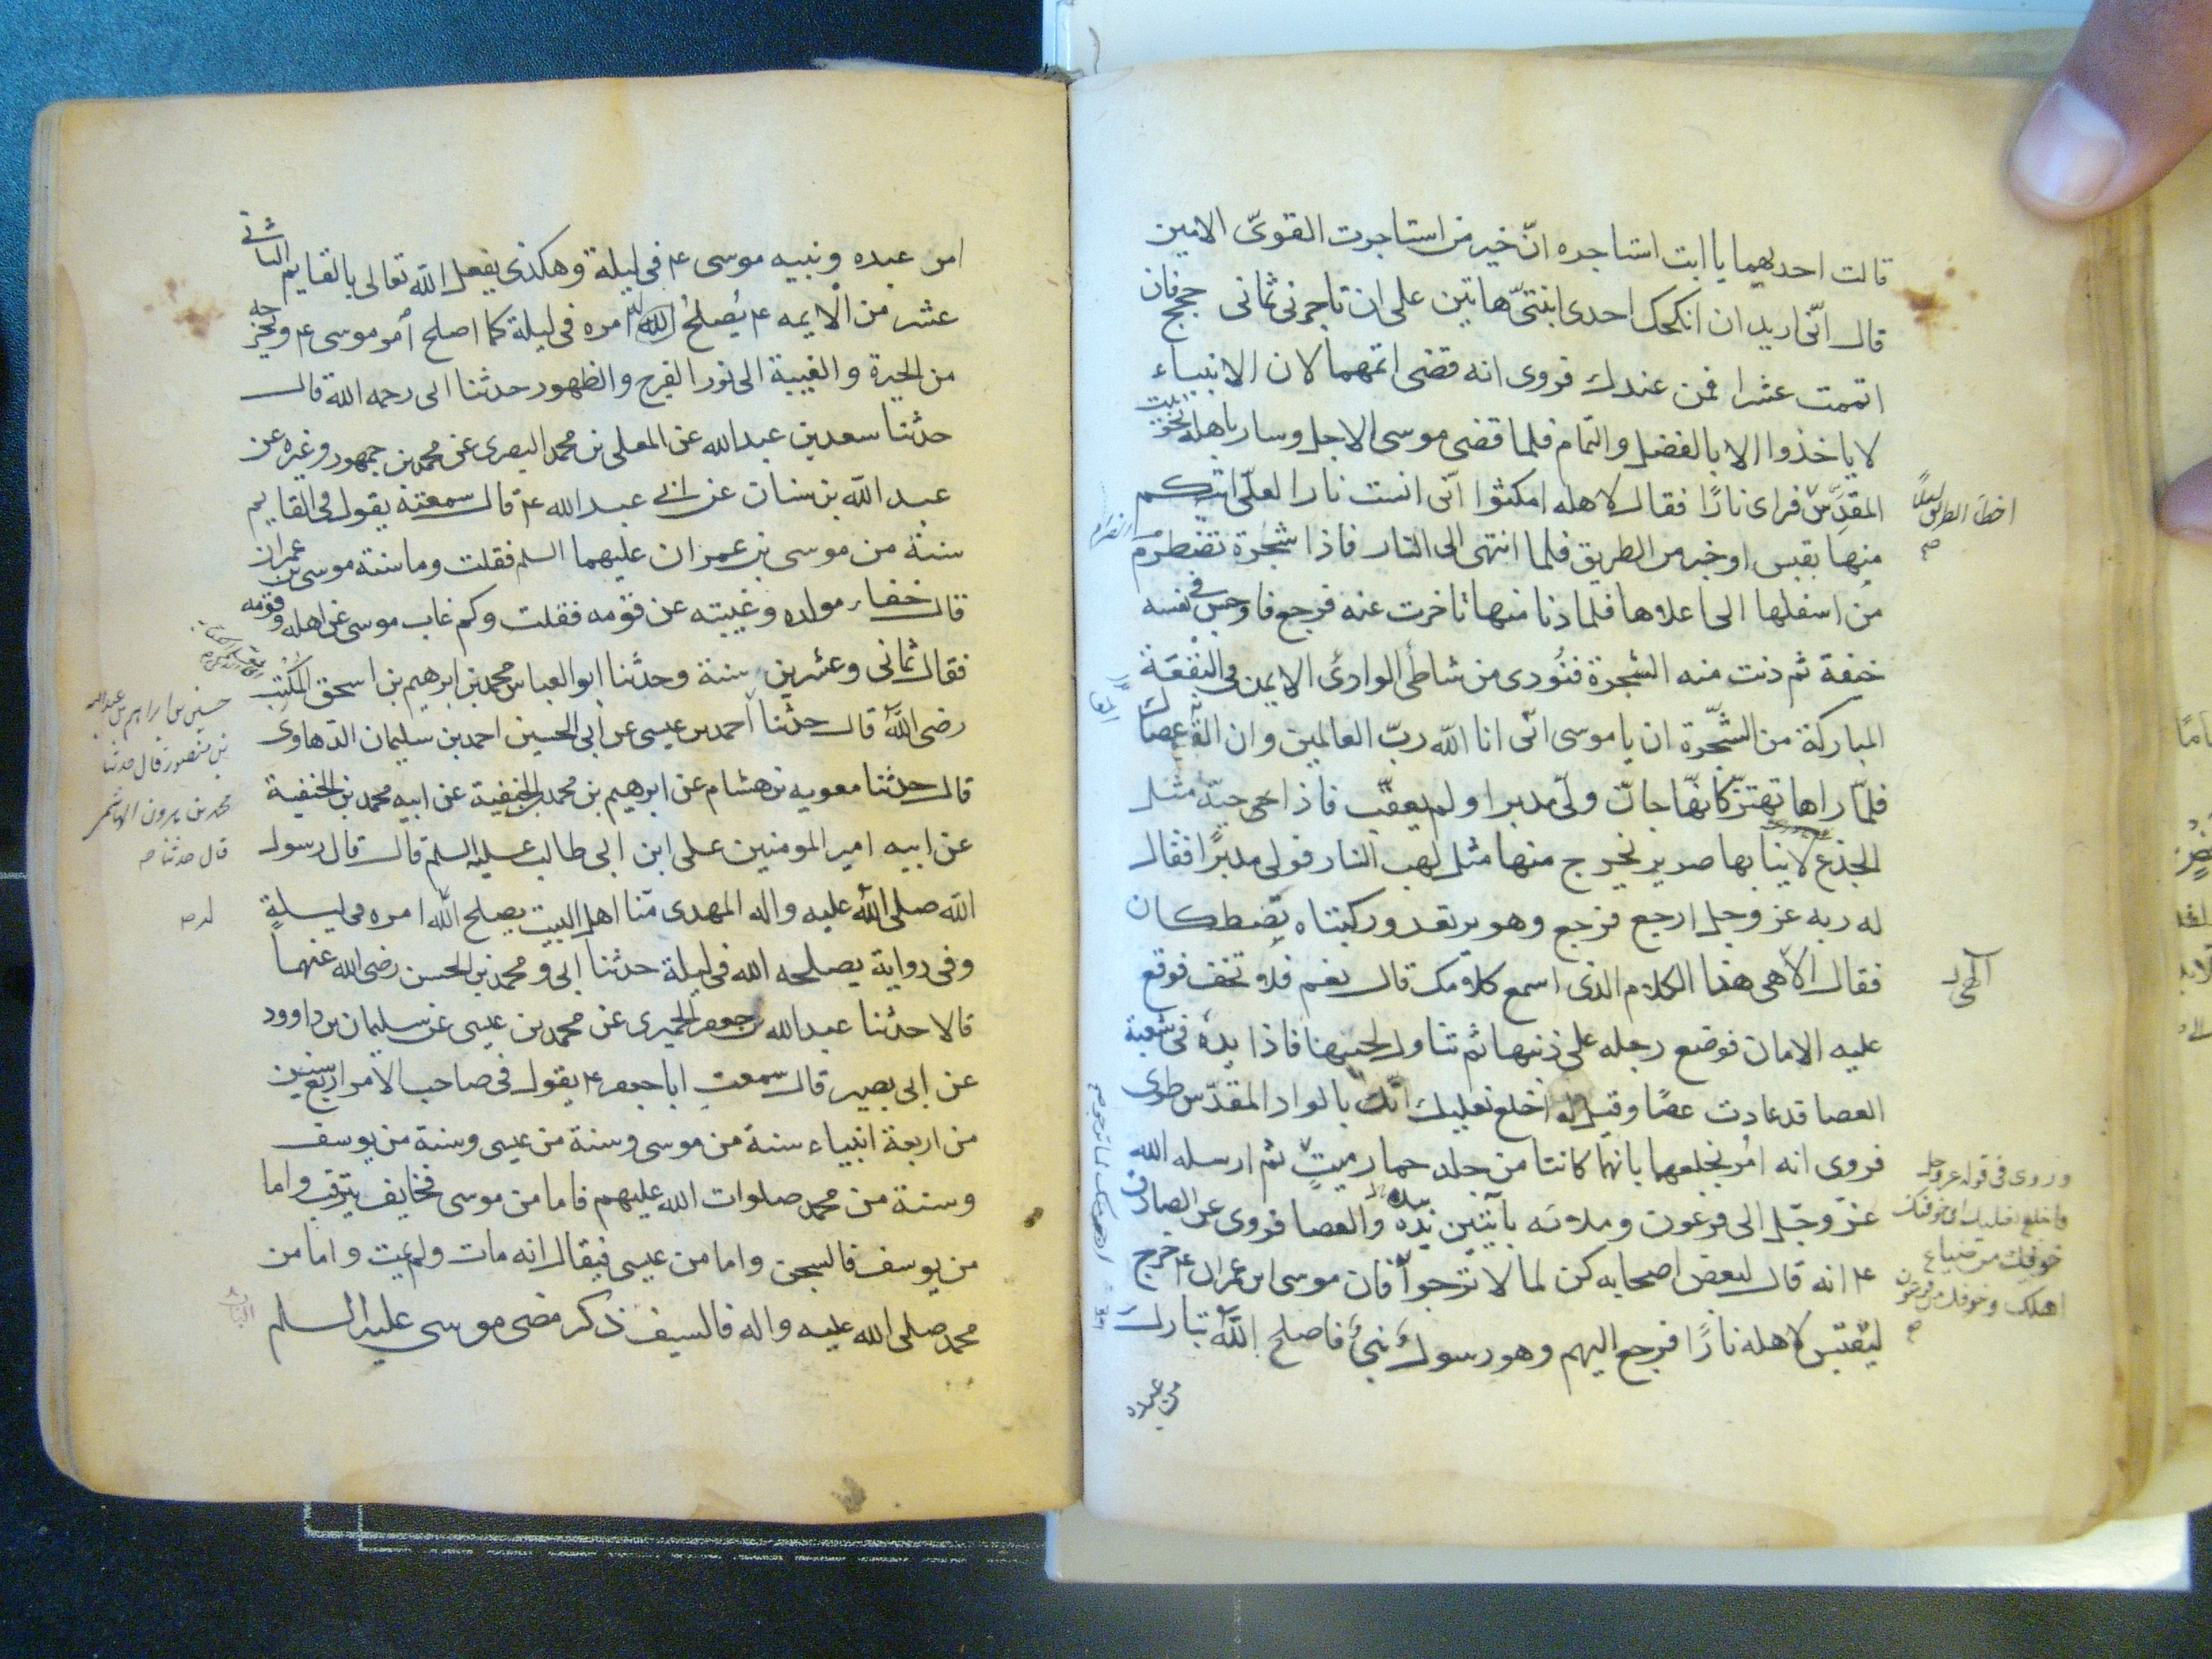 قالت احديهما يا ابت استاجره انّ خير من استاجرت القوىّ الامين
قال انّى اريد ان انكحك احدى ابنتىّ هاتين على ان تاجرنى ثمانى حجج فان
اتممت عشرا فمن عندك فروى انه قضى اتمهما لان الانبياء
لا ياخذوا الا بالفضل والتمام فلما قضى موسى الاجل وسار باهله نحو بيت
المقدّس فراى نارًا فقال لاهله امكثوا انّى انست نارا لعلّى اتيكم
اخطَا الطريق ليلًا
منها بقبس او خبر من الطريق فلما انتهى الى النار فاذا شجرة تضطرم
من اسفلها الى اعلاها فلما دنا منها تاخرت عنه فرجع فاوجس فى نفسه
خيفة ثم دنت منه الشجرة فنُودى من شاطئ الوادى الايمن فى البقعة
المباركة من الشّجرة ان يا موسى انّى انا الله ربّ العالمين وان الق عصاك
فلمّا راها تهتزّ كانّها جانّ ولّى مدبرا ولم يعقّب فاذا هى حيّة مثل
الجذع لانيابها صرير يخرج منها مثل لهب النار فولى مدبرًا فقال
له ربه عز وجل ارجع فرجع وهو يرتعد وركبتاه تضطكان
فقال الاهى هذا الكلام الذى اسمع كلامك قال نعم فلا تخف فوقع
الٰهى
عليه الامان فوضع رجله على ذنبها ثم تناول لحييها فاذا يده فى شعبة
العصا قد عادت عصًا وقيل له اخلع نعليك انّك بالواد المقدّس طوى
فروى انه امُر بخلعهما بانهما كانتا من جلد حمار ميتٍ ثم ارسله الله
عزّ وجّل الى فرعون وملائه بآيتين يده والعصا فروى عن الصادق
ع انه قال لبعض اصحابه كن لما لا ترجوا فان موسى ابن عمران ع خرج
ليقتبس لاهله نارًا فرجع اليهم وهو رسولٌ نبىٌ فاصلح الله تبارك
وروى فى قوله عز وجل
فاخلع نعليك اى خوفيك
خوفك من ضياع
اهلك وخوفك من فرعون
امر عبده ونبيه موسى ع فى ليلة وهكذى يفعل الله تعالى بالقايم الثانى
عشر من الايمه ع يُصلحُ الله امره فى ليلة كما اصلح أمر موسى ع ويخرجه
من الحيرة والغيبة الى نور الفرج والظهور حدثنا ابى رحمه الله قال
حدثنا سعد بن عبد الله عن المعلى بن محمد البصرى عن محمد بن جمهور وغيره عن
عبد الله بن سنان عن ابى عبد الله ع قال سمعته يقول فى القايم
سنة من موسى بن عمران عليهما السلم فقلت وما سنة موسى بن عمران
قال خفاء مولده وغيبته عن قومه فقلت وكم غاب موسى عن اهله وقومه
فقال ثمانى وعشرين سنة وحدثنا ابو العباس محمد بن ابرهيم بن اسحق المكتب
رضى الله قال حدثنا احمد بن عيسى عن ابى الحسين احمد بن سليمان الدهاوى
قال حدثنا معويه بن هشام عن ابرهيم بن محمد بن الحنفية عن ابيه محمد بن الحنفية
عن ابيه امير المومنين على ابن ابى طالب عليه السلم قال قال رسول
الله صلى الله عليه واله المهدى منّا اهل البيت يصلح الله امره فى ليلةٍ
وفى رواية يصلحه الله فى ليلة حدثنا ابى ومحمد بن الحسن رضى الله عنهما
قالا حدثنا عبد الله بن جعفر الحميرى عن محمد بن عيسى عن سليمان بن داوود
عن ابى بصير قال سمعت ابا جعفر ع يقول فى صاحب الامر اربع سنين
من اربعة انبياء سنة من موسى وسنة من عيسى وسنة من يوسف
وسنة من محمد صلوات الله عليهم فاما من موسى فخايف يترقب واما
من يوسف فالسجن واما من عيسى فيقال انه مات ولم يمت واما من
محمد صلى الله عليه واله فالسيف ذكر مضى موسى عليه السلم
حسين بن ابراهيم بن عبد الله
بن منصور قال حدثنا
محمد بن هرون الهاشمى
قال حدثنا